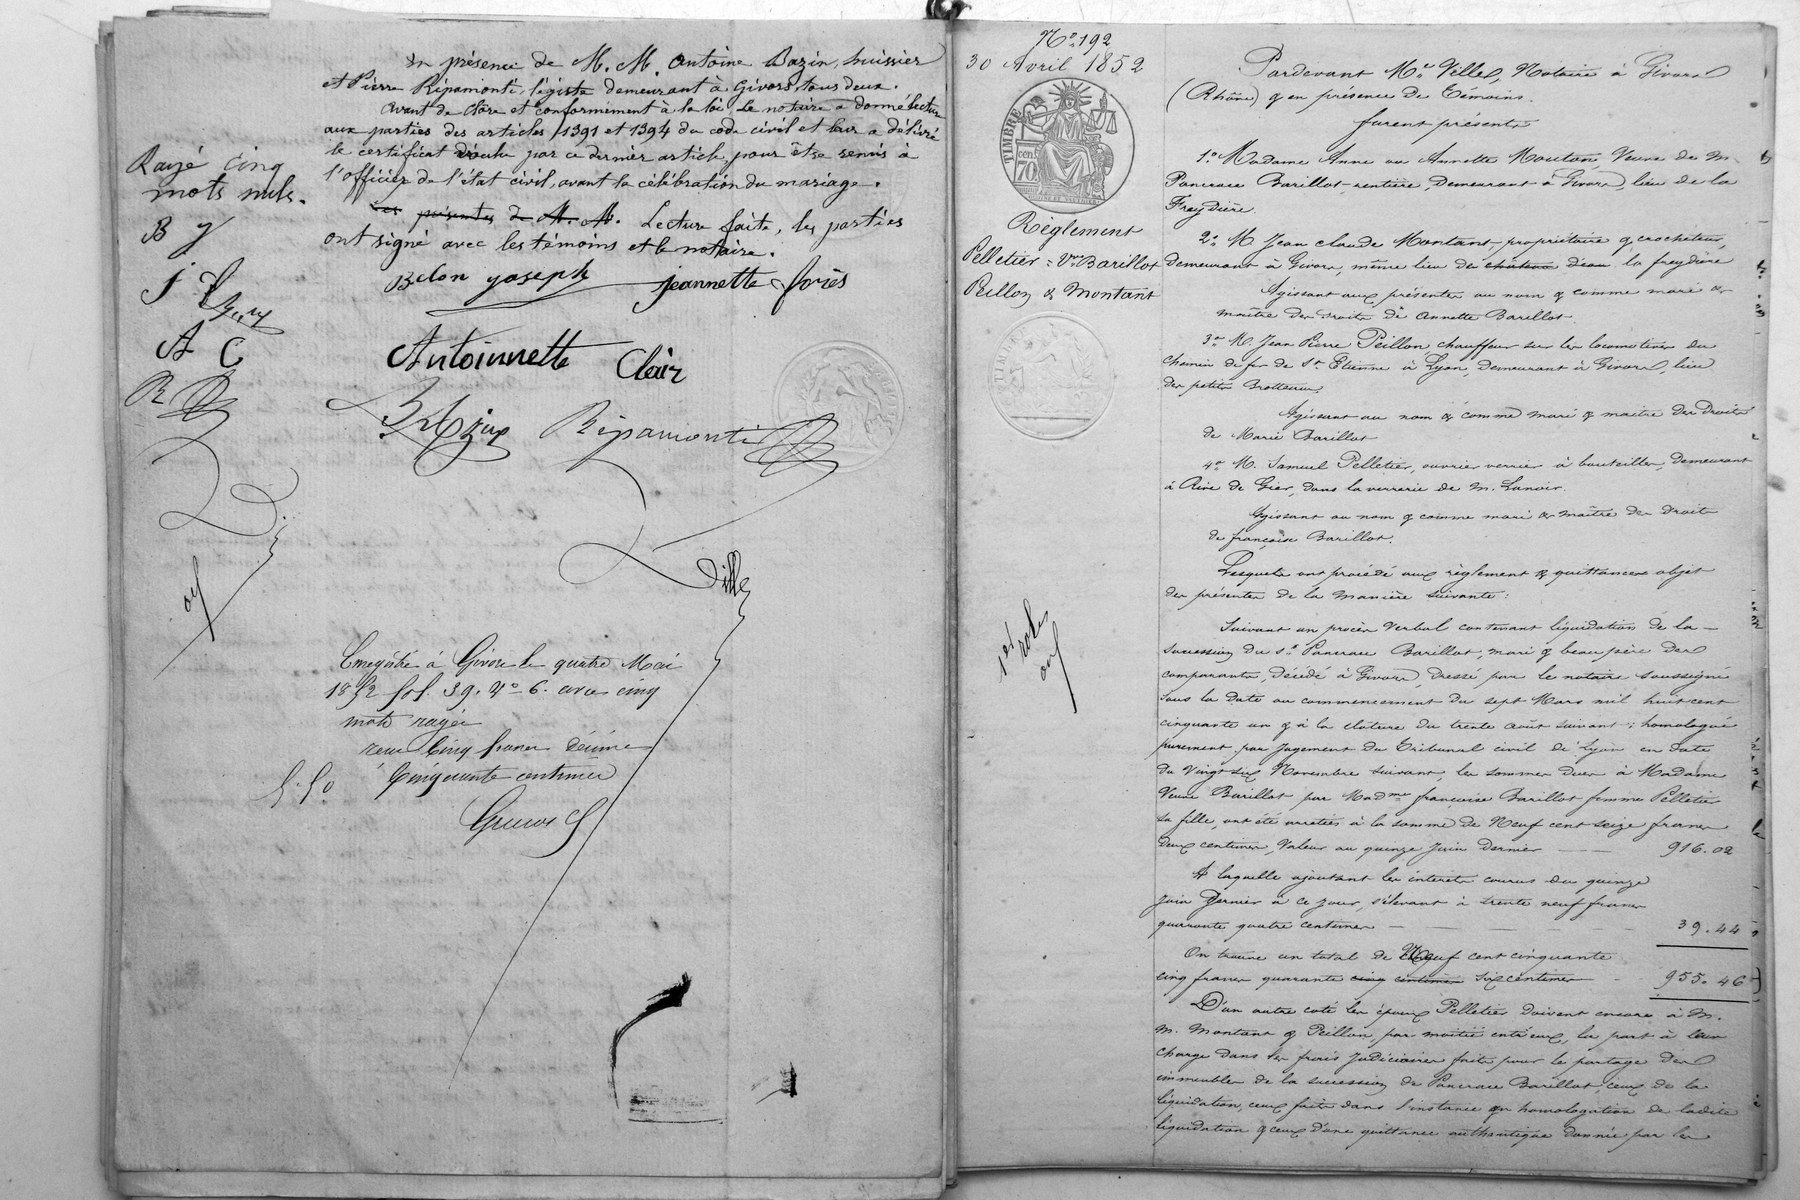 En présence de M. M. Antoine Bazin, huissier
et Pierre Ripamonti, légiste demeurant à Givors tous deux.
Avant de clore et conformément à la loi le notaire a donné lecture
aux parties des articles 1391 et 1394 du code civil et leur a délivré
le certificat voulu par ce dernier article, pour être remis à
l'officier de l'état civil, avant la célébration du mariage.
Les présentes de M. M. Lecture faite, les parties
ont signé avec les témoins et le notaire.
Rayé cinq
mots nuls.
B y
j
A C
R
Belon joseph jeannette foriès
Antoinnette Clair
Bazin Ripamonti
Ville
Enregistré à Givors le quatre Mai
1852 fol. 39. Vo 6. avec cinq
mots rayés
reçu Cinq francs décime
Cinquante centimes
5.50
No 192
30 Avril 1852
TIMBRE
70 cen
Règlement
Pelletier = Vve Barillot
Peillon & Montant
1er rôle
Pardevant Me Ville, Notaire à Givors
(Rhône) & en présence de témoins.
furent présents
1o Madame Anne ou Annette Moutonr Veuve de M.
Pancrace Barillot rentière, demeurant à Givors, lieu de la
Freydière.
2o M. Jean Claude Montant, propriétaire & crocheteur,
demeurant à Givors, même lieu de château d'eau la freydière
Agissant aux présentes au nom & comme mari &
maître des droits de Annette Barillot.
3o M. Jean Pierre Peillon chauffeur sur les locomotives du
Chemin de fer de St Etienne à Lyon, demeurant à Givors, lieu
des petits Brotteaux.
Agissant au nom & comme mari & maître des Droits
de Marie Barillot
4o M. Samuel Pelletier, ouvrier verrier à bouteilles, demeurant
à Rive de Gier, dans la verrerie de M. Lanoir.
Agissant au nom & comme mari & maître des droits
de françoise Barillot.
Lesquels ont procédé aux règlement & quittances objet
des présentes de la manière suivante :
Suivant un procès verbal contenant liquidation de la
succession du Sr Pancrace Barillot, mari & beau père des
comparants, décédé à Givors, dressé par le notaire soussigné
sous la date au commencement du sept Mars mil huit cent
cinquante un & à la cloture du trente août suivant ; homologué
purement par jugement du Tribunal civil de Lyon en date
du vingt six Novembre suivant les sommes dues à Madame
Veuve Barillot par Madme françoise Barillot femme Pelletier
sa fille, ont été arretées à la somme de Neuf cent seize francs
deux centimes, valeur au quinze Juin dernier 916.02
A laquelle ajoutant les intérêts courus du quinze
Juin Dernier à ce jour, s'élevant à trente neuf francs
quarante quatre centimes 39.44
On trouve un total de Neuf cent cinquante
cinq francs quarante cinq centimes six centimes 955.46
D'un autre coté les époux Pelletier doivent encore à M.
M. Montant & Peillon, par moitié entr'eux, la part à leur
charge dans les frais judiciaires faits pour le partage des
immeubles de la succession de Pancrace Barillot, ceux de la
liquidation, ceux faits dans l'instance en homologation de ladite
liquidation & ceux d'une quittance authentique donnée par les